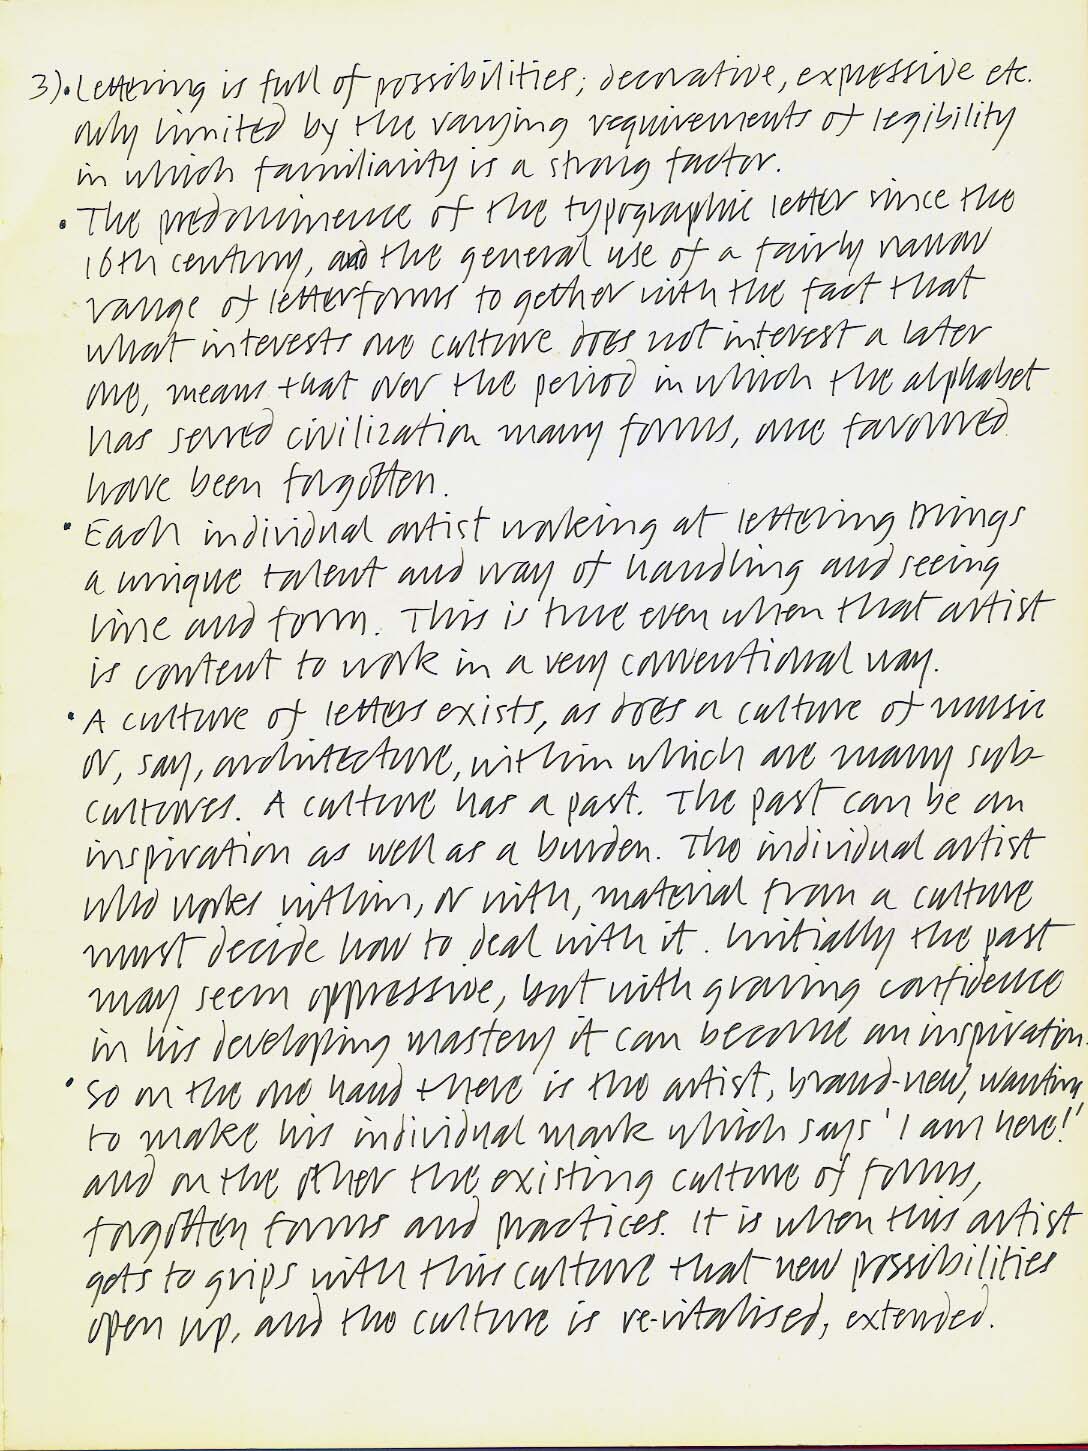 3). • Lettering is full of possibilities; decorative, expressive etc.
only limited by the varying requirements of legibility
in which familiarity is a strong factor.
• The predominence of the typographic letter since the
16th century, and the general use of a fairly narrow
range of letterforms to gether with the fact that
what interests one culture does not interest a later
one, means that over the period in which the alphabet
has served civilization many forms, once favoured
have been forgotten.
• Each individual artist working at lettering brings
a unique talent and way of handling and seeing
line and form. This is true even when that artist
is content to work in a very conventional way.
• A culture of letters exists, as does a culture of music
or, say, architecture, within which are many sub-
cultures. A culture has a past. The past can be an
inspiration as well as a burden. The individual artist
who works within, or with, material from a culture
must decide how to deal with it. Initially the past
may seem oppressive, but with growing confidence
in his developing mastery it can become an inspiration.
• So on the one hand there is the artist, brand-new, wanting
to make his individual mark which says 'I am here!'
and on the other the existing culture of forms,
forgotten forms and practices. It is when this artist
gets to grips with this culture that new possibilities
open up, and the culture is re-vitalised, extended.